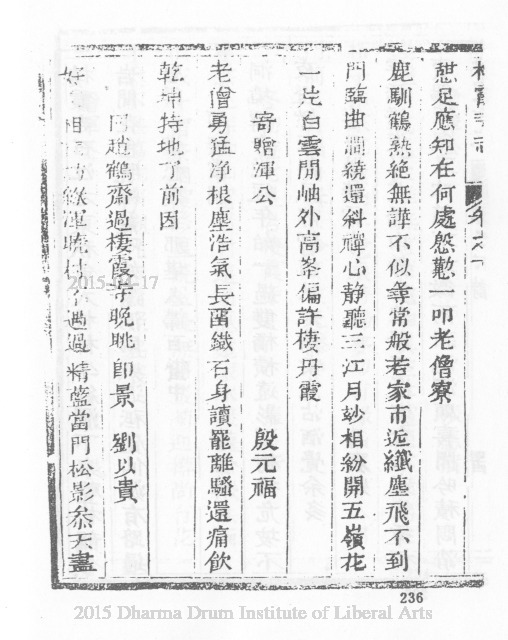 憇足應知在何處慇懃一叩老僧寮
鹿馴鶴熟絕無譁不似尋常般若家市近纖塵飛不到
門臨曲澗繞還斜禪心靜聽三江月妙相紛開五嶺花
一片白雲閒岫外高峯偏許棲丹霞
寄贈渾公 殷元福
老僧勇猛净根塵浩氣長畱鐵石身讀罷離騷還痛飲
乾坤持地了前因
同趙鶴齋過棲霞寺晚眺即景 劉以貴
好 相 過過精藍當門松影叅天盡
236
2015-04-17
2015 Dharma Drum Institute of Liberal Arts